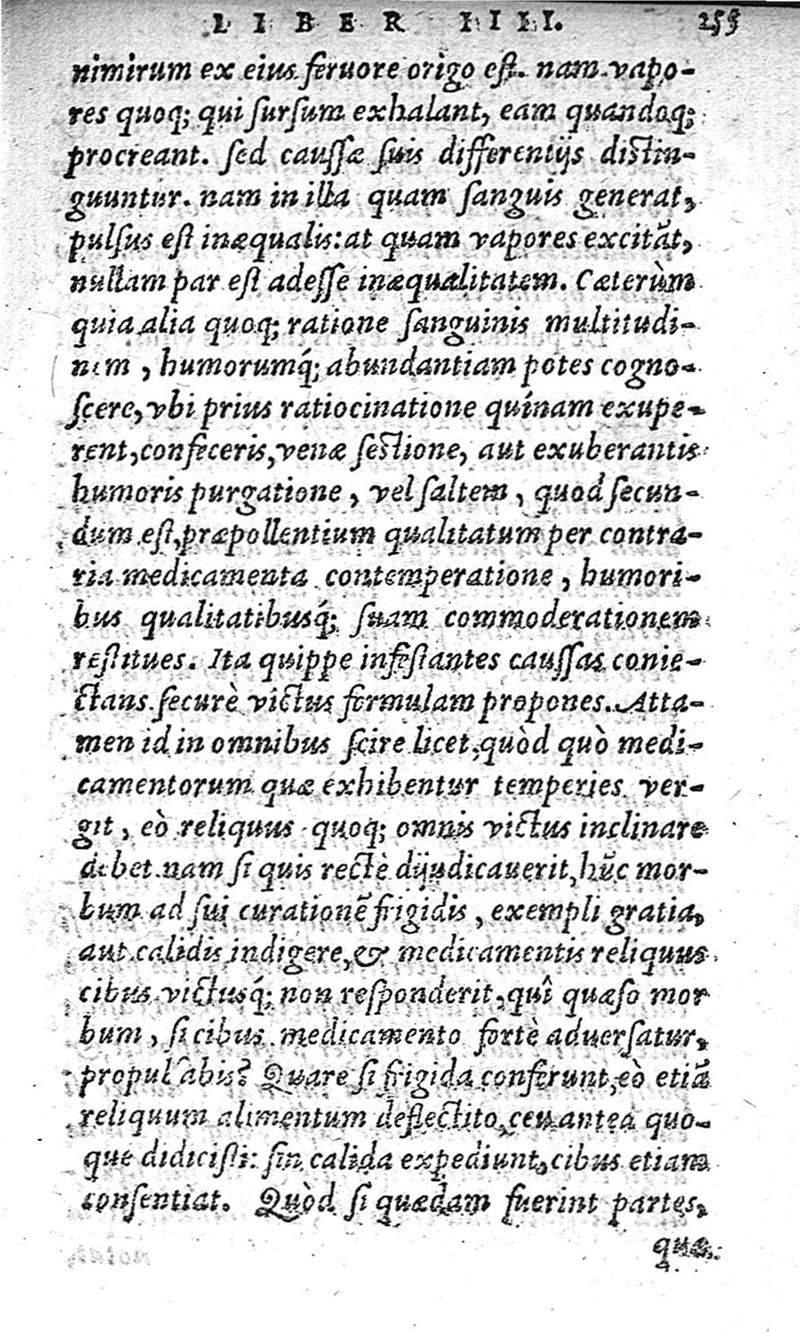 LIBER IIII. 255
nimirum ex eius feruore origo est. nam vapo-
res quoq; qui sursum exhalant, eam quandoq;
procreant. sed caussæ suis differentijs distin-
guuntur. nam in illa quam sanguis generat,
pulsus est inæqualis: at quam vapores excitāt,
nullam par est adesse inæqualitatem. Cæterùm
quia alia quoq; ratione sanguinis multitudi-
nem, humorumq́; abundantiam potes cogno-
scere, vbi prius ratiocinatione quínam exupe-
rent, confeceris, venæ sectione, aut exuberantis
humoris purgatione, vel saltem, quod secun-
dum est, præpollentium qualitatum per contra-
ria medicamenta contemperatione, humori-
bus qualitatibusq́; suam commoderationem
restitues. Ita quippe infestantes caussas conie-
ctans securè victus formulam propones. Atta-
men id in omnibus scire licet, quòd quò medi-
camentorum quæ exhibentur temperies ver-
git, eò reliquus quoq; omnis victus inclinare
debet. nam si quis rectè dijudicauerit, hūc mor-
bum ad sui curationē frigidis, exempli gratia,
aut calidis indigere, & medicamentis reliquus
cibus victusq́; non responderit, quî quæso mor
bum, si cibus medicamento fortè aduersatur,
propulsabis? Quare si frigida conferunt, eò etiā
reliquum alimentum deflectito, ceu antea quo-
que didicisti: sin calida expediunt, cibus etiam
consentiat. Quòd si quædam fuerint partes,
quæ